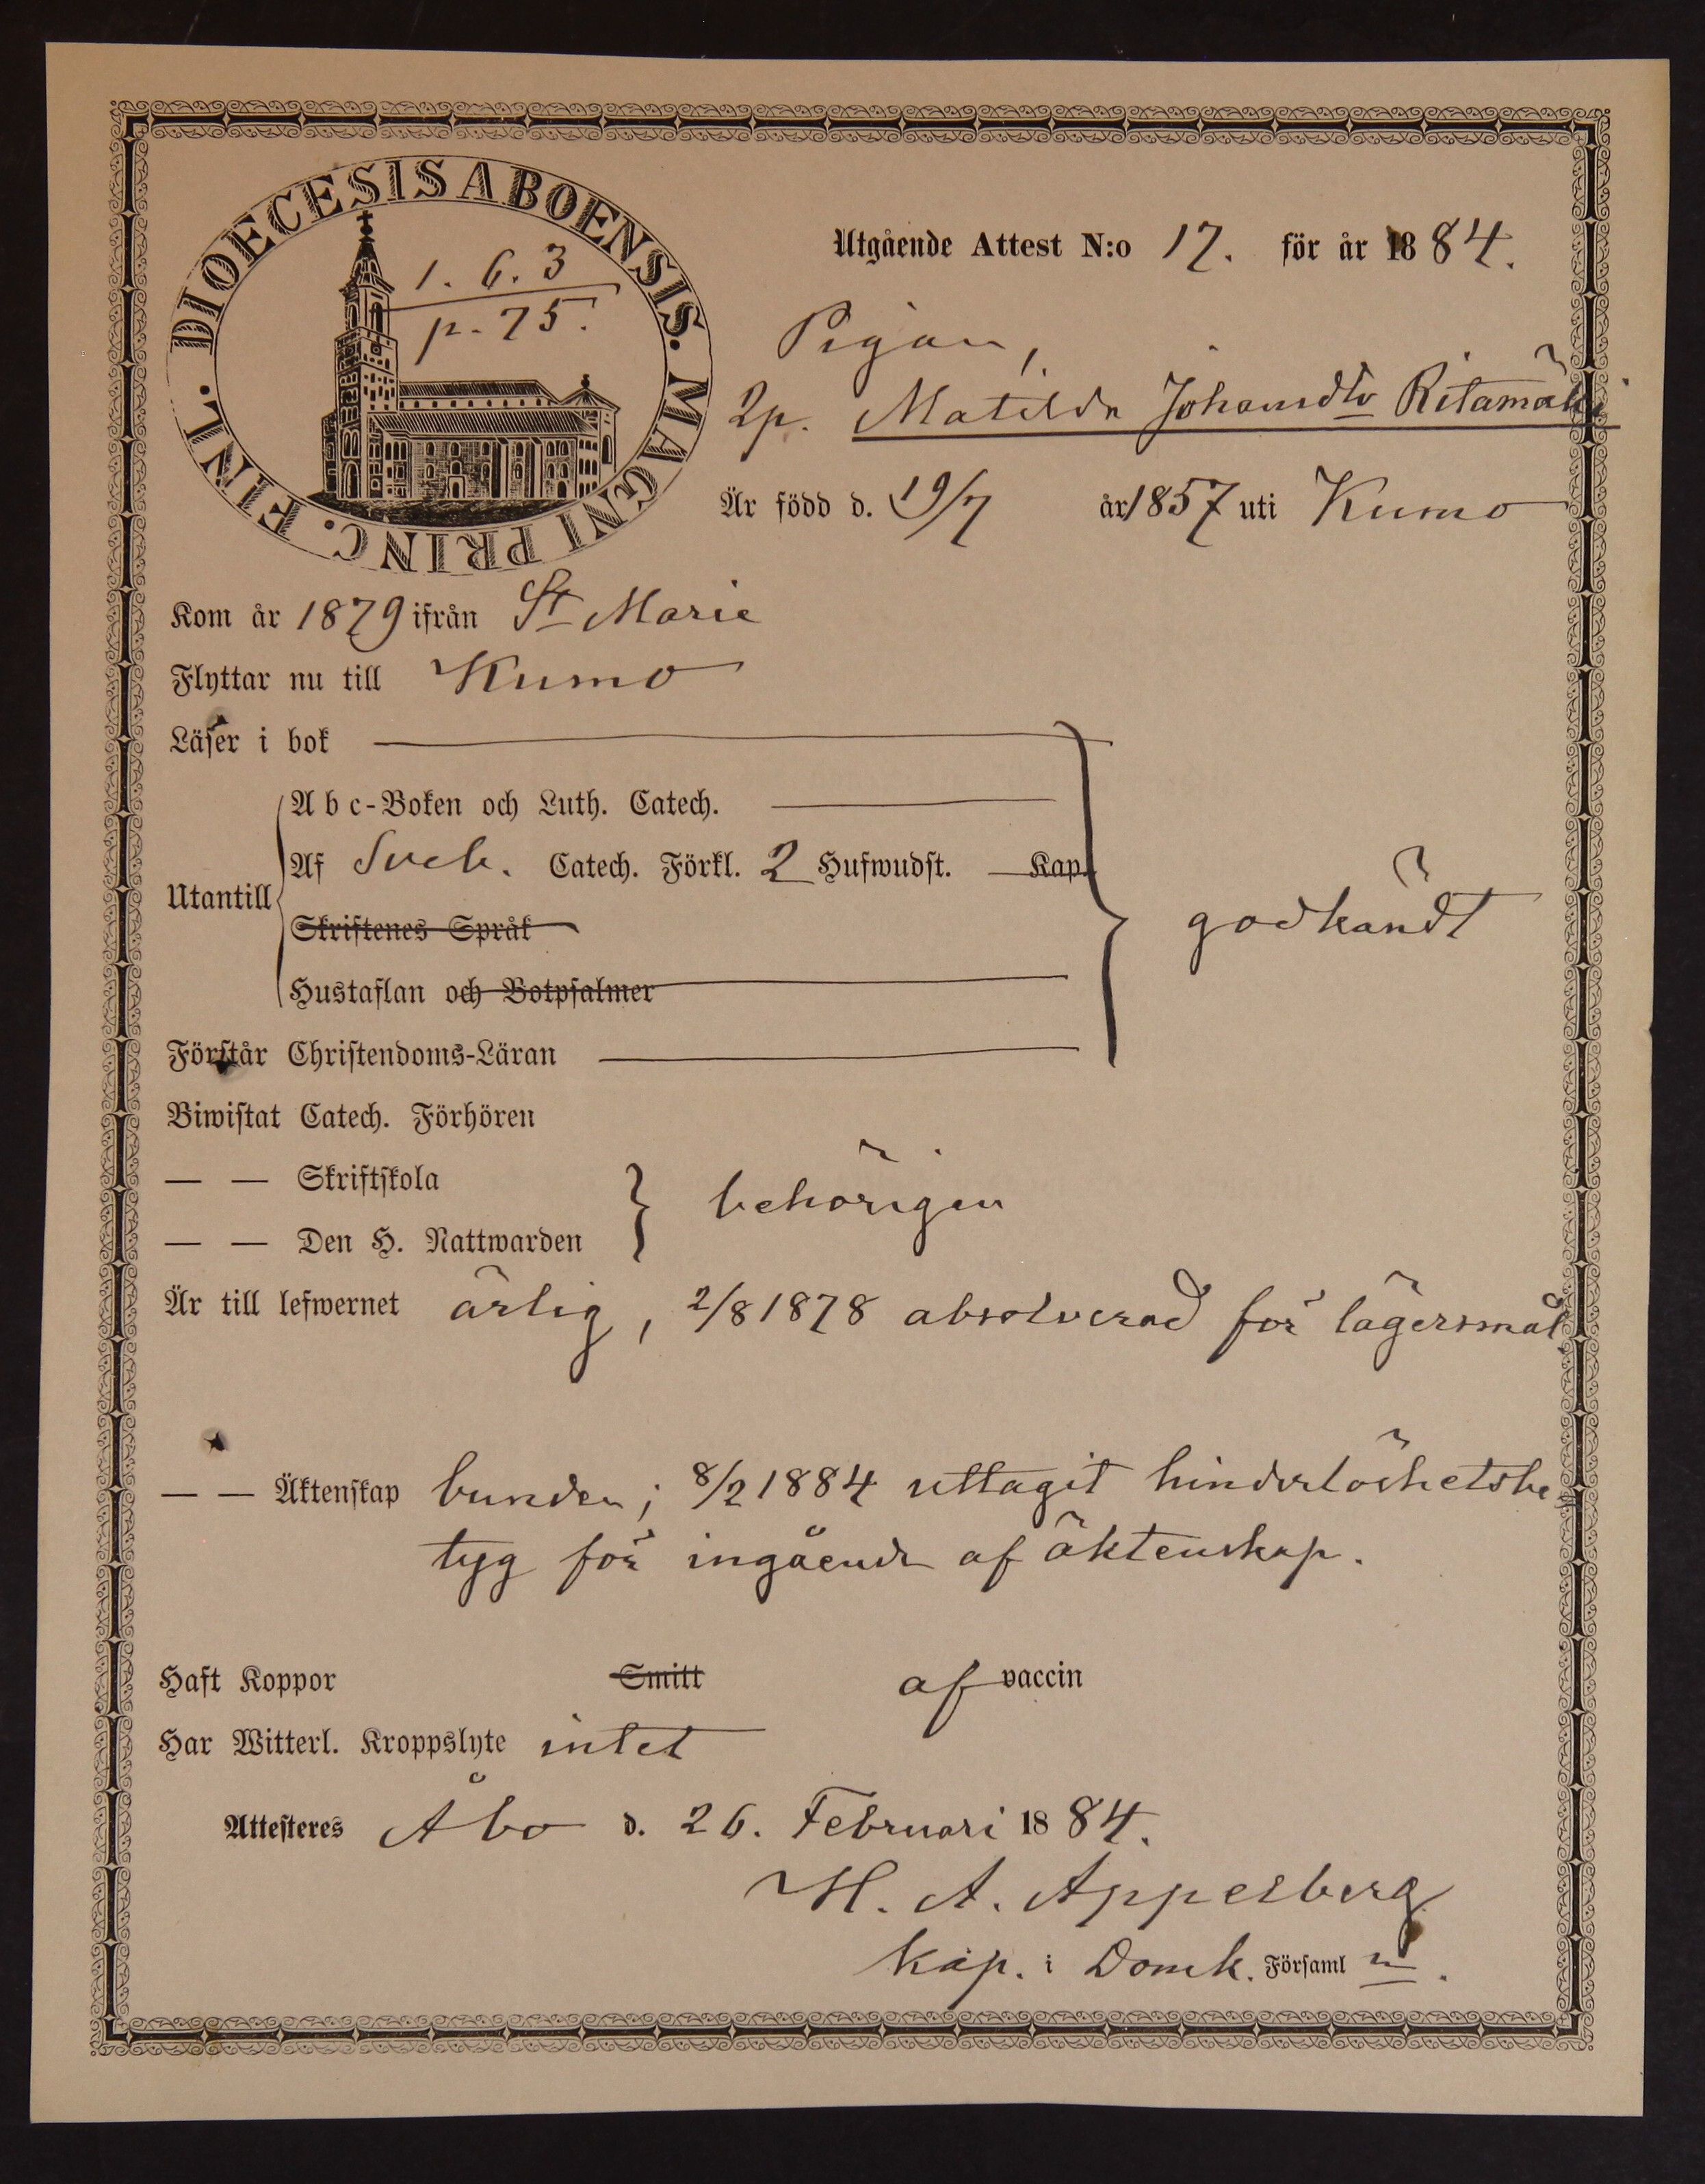 DIOECESIS ABOENSIS. MAGNI PRINC. FINL.
1. 6. 3
p. 75.
Utgående Attest N:o 17. för år 1884.
Pigan,
2p. Matilda Johansdtr Ritamäki
Är född d. 19/7 år 1857 uti Kumo
Kom år 1879 ifrån St Marie
Flyttar nu till Kumo
Läser i bok
Abc-Boken och Luth. Catech.
Af Sveb. Catech. Förkl. 2 Hufwudst. Kap.
Utantill
godkändt
Skriftenes Språk
Hustaflan och Botpsalmer
Förstår Christendoms-Läran
Biwistat Catech. Förhören
— — Skriftskola
behörigen
— — Den H. Nattwarden
Är till lefwernet ärlig, 2/8 1878 absolverad för lägersmål
— — Äktenskap bunden; 8/2 1884 uttagit hinderlöshetsbe-
tyg för ingående af äktenskap.
Haft Koppor Smitt af vaccin
Har Witterl. Kroppslyte intet
Attesteres Åbo d. 26. Februari 1884.
H. A. Appelberg
Kap. i Domk. Församl n.